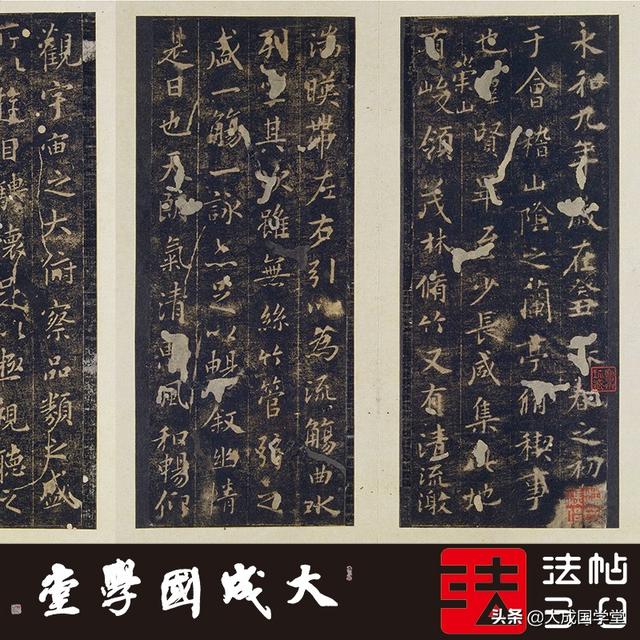 永和九年歲在癸丑暮春之初
于會稽山陰之蘭亭脩禊事
也群賢畢至少長咸集此地
有崇山峻領茂林脩竹又有清流激
湍暎帶左右引以為流觴曲水
列坐其次雖無絲竹管弦之
盛一觴一詠亦足以暢敘幽情
是日也天朗氣清惠風和暢仰
觀宇宙之大俯察品類之盛
所以遊目騁懷足以極視聽之
大成國學堂
法帖
头条 @大成国学堂